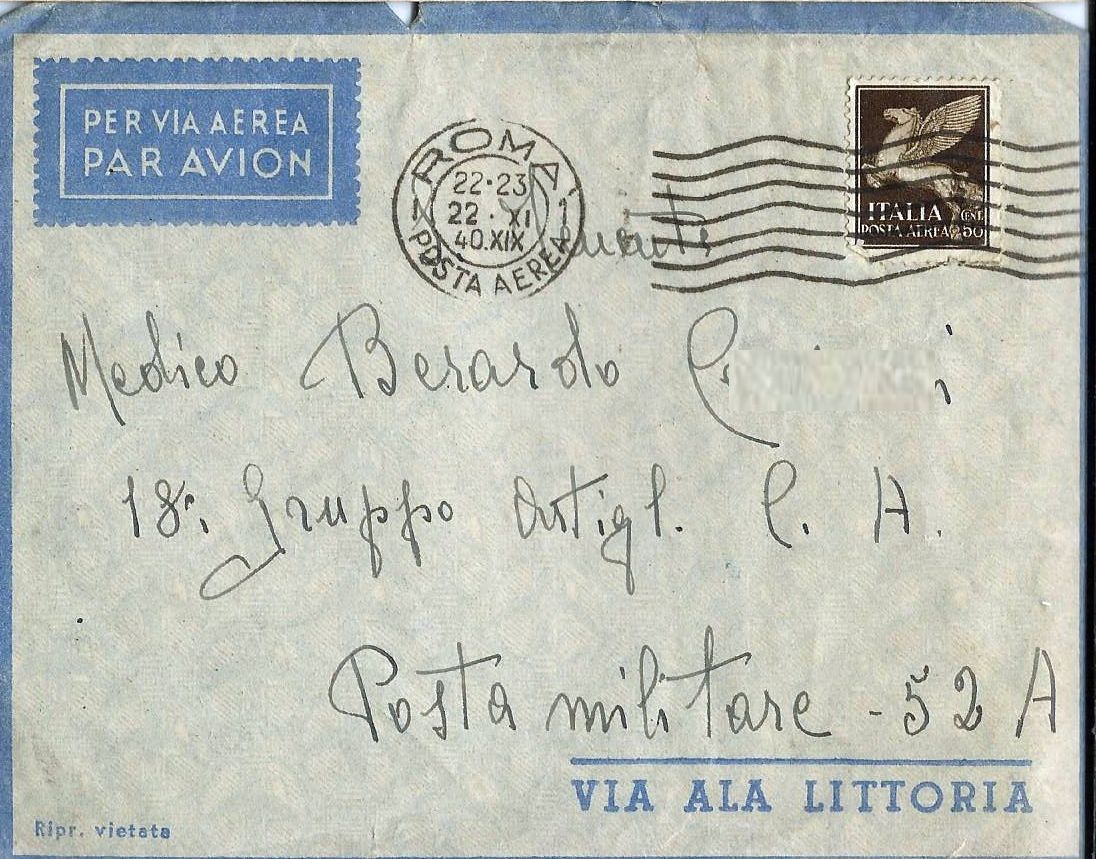 PER VIA AEREA
PAR AVION
ROMA
22·23
1 22·XI 1
40.XIX
POSTA AEREA
ITALIA CENT.
POSTA AEREA 50
Medico Berardo
18º Gruppo Artigl. C. A.
Posta militare - 52 A
VIA ALA LITTORIA
Ripr. vietata